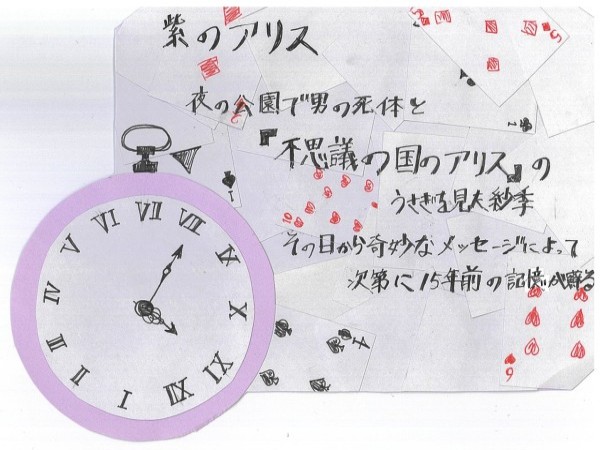 紫のアリス
夜の公園で男の死体と
『不思議の国のアリス』の
うさぎを見た紗季
その日から奇妙なメッセージによって
次第に15年前の記憶が蘇る
I
II
III
IV
V
VI
VII
VIII
IX
X
XI
XII
5
1
10
4
6